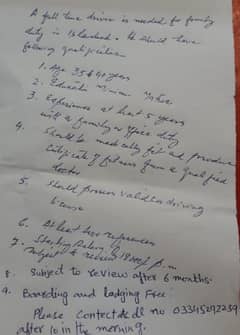 A full time driver is needed for family
duty in Islamabad. He should have
following qualification
1. Age 35 & 40 years
2. Education Minim. Matric
3. Experience at least 5 years
with a family or office duty
4. Should be medically fit and produce
Certificate of fitness from a qualified
doctor
5. Should possess valid LTV driving
licence
6. At least two references
7. Starting Salary Rs
Subject to review 18000/ p.m
8. Subject to review after 6 months.
9. Boarding and Lodging Free.
Please Contact at cell no 03345292239
after 10 in the morning.